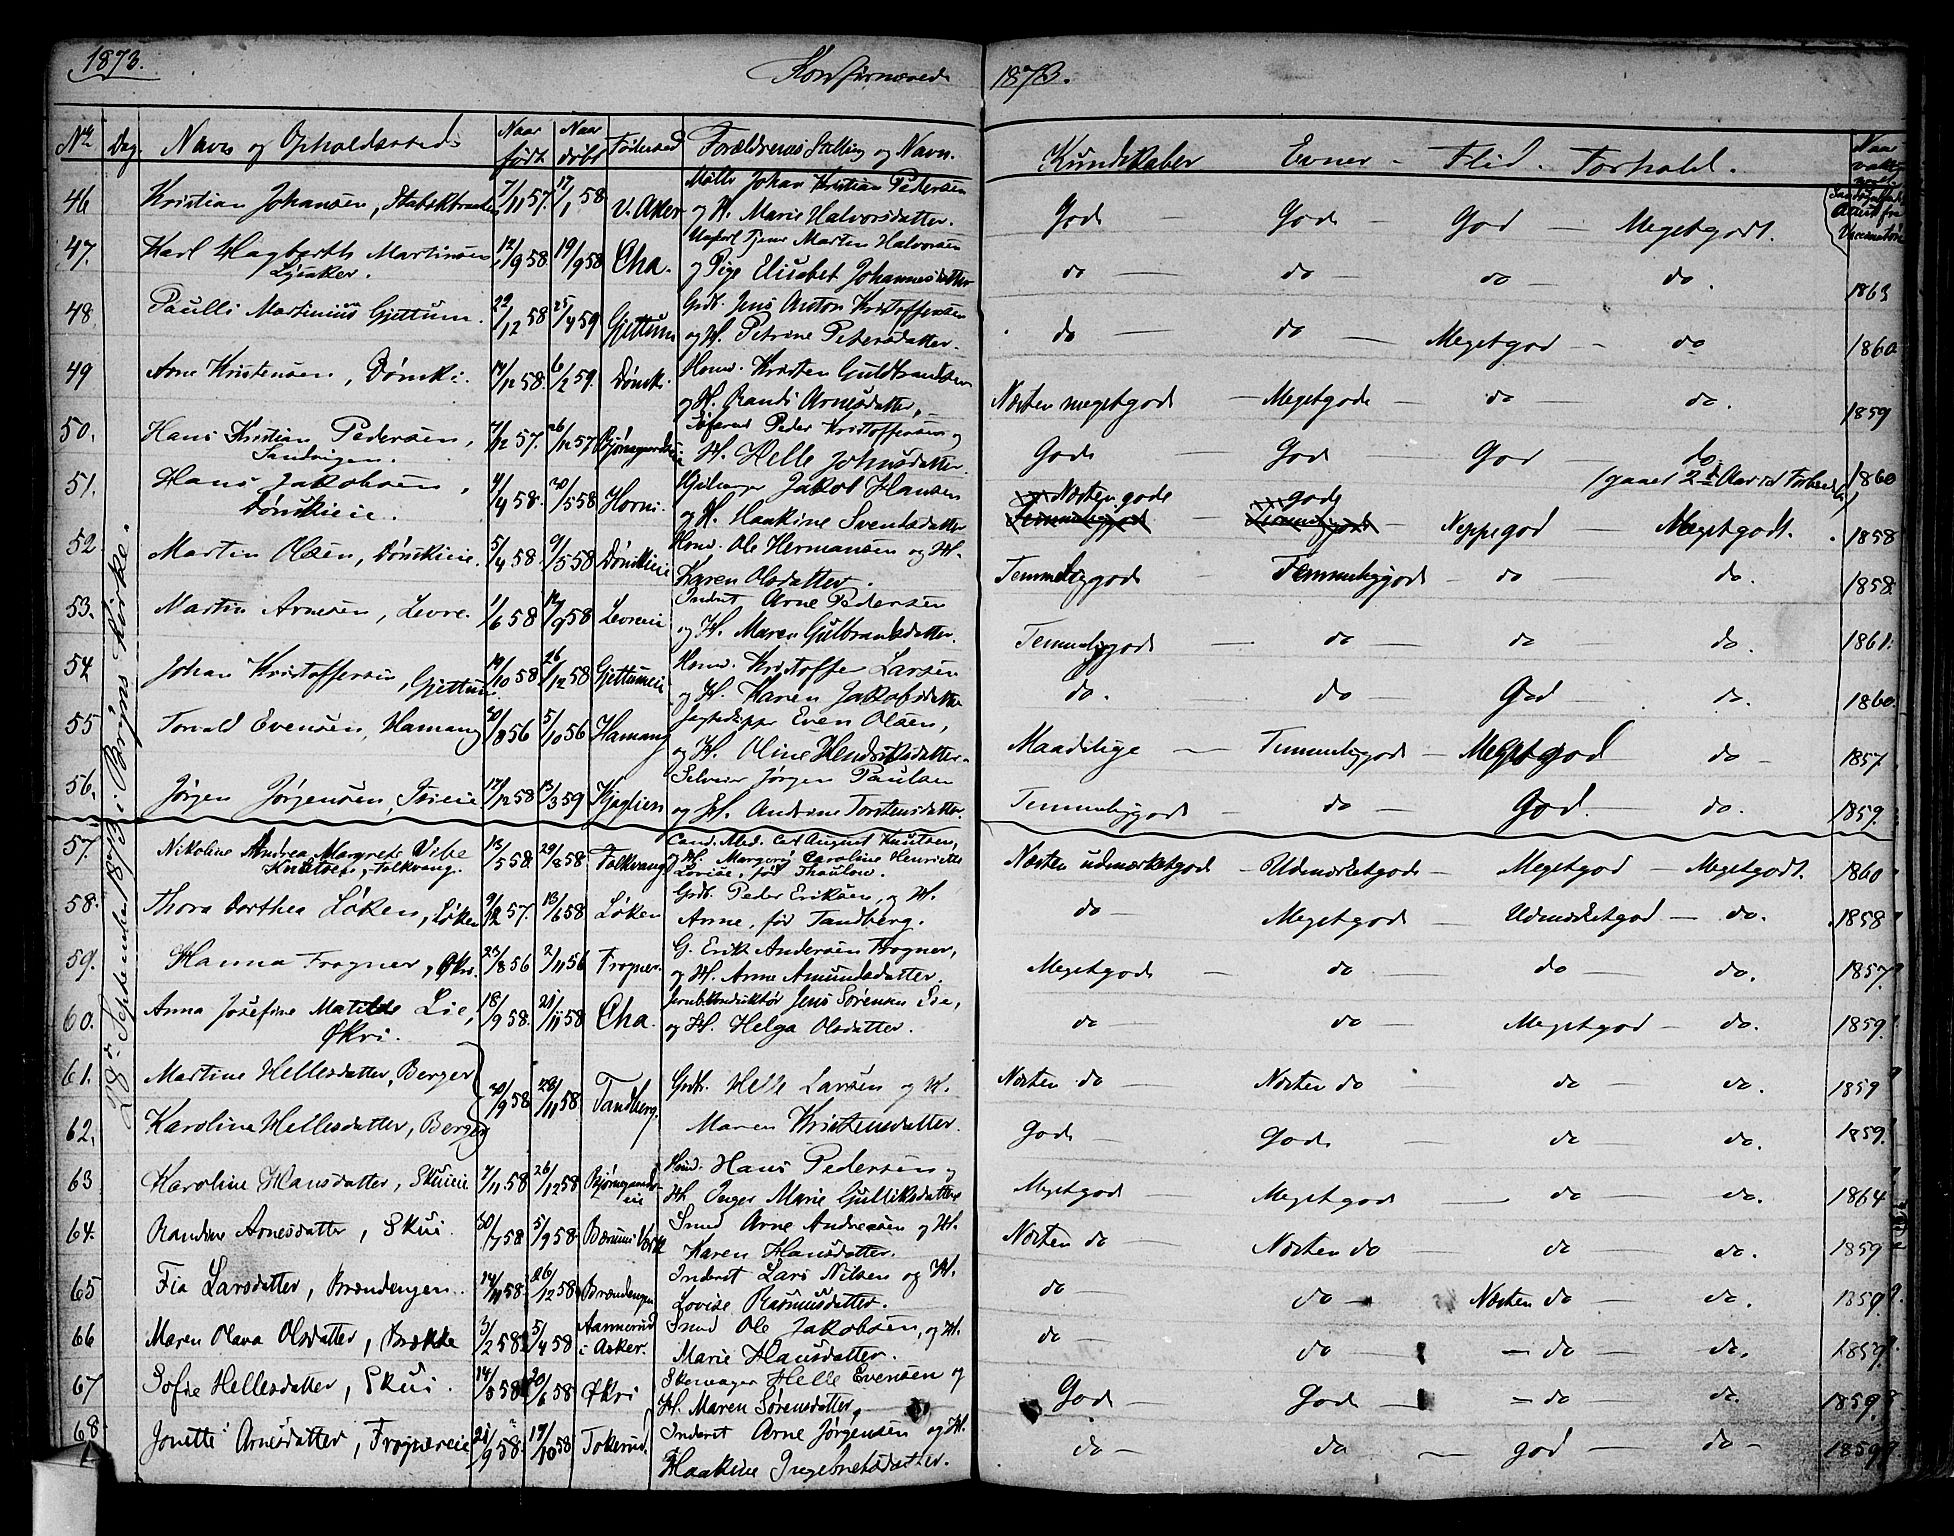 1873.
Konfirmerede
1873.
No Dag. Navn og Opholdssted. Naar født. Naar døbt Fødested Forældrenes Stilling og Navn.
Kundskaber Evner - Flid. Forhold. Naar vakc.
46 Kristian Johansen, 7/11 57. 17/1 58 V. Aker Johan Kristian Pedersen
og H. Marie Halvorsdatter.
Gode God - God - Megetgodt. Attest fra Vaccinatør
47. Karl Hagbarth Martinsen 12/9 58 19/9 58 Cha. Tjener Marten Halvorsen
Lysaker. og Pige Elisabet Johannesdatter
do - do - do - do. 1863
48. Paulli Martinius Gjettum. 22/12 58 25/4 59 Gjettum Grdb. Jens Anton Kristoffersen
og H. Petrine Petersdatter.
do - do - Megetgod - do 1860
49 Arne Kristensen, Dønski. 14/12 58. 6/2 59. Dønsk. Husm. Kristen Guldbrandsen
og H. Randi Arnesdatter,
Næsten megetgode - Megetgode - do - do. 1859
50. Hans Kristian Pedersen, 7/12 57. 26/12 57 Bjørnegaardseie Peder Kristoffersen og
Sandvigen. H. Helle Johnsdatter.
Gode God - God - do. 1860
51. Hans Jakobsen, 4/4 58. 30/5 58 Horni. Jakob Hansen
Dønskieie. og H. Haakine Svendsdatter
Næsten gode gode (gaaet 2de Aar
Temmeliggode - Temmeliggode - Neppegod - Megetgodt. 1858
52 Martin Olsen, Dønskieie. 5/4 58 9/5 58 Dønskieie Husm. Ole Hermansen og H.
Karen Olsdatter.
Temmeliggode - Temmeliggode - do - do. 1858.
53. Martin Arnesen, Levre. 1/6 58 12/9 58 Levreeie Inderst Arne Pedersen
og H. Maren Gulbrandsdatter.
Temmeliggode - do - do do. 1861.
54 Johan Kristoffersen, Gjettum. 19/10 58 26/12 58 Gjettumeie Husm. Kristoffer Larsen
og H. Karen Jakobsdatter
do. do - God - do. 1860.
55 Torvald Evensen, Hamang 30/8 56 5/10 56 Hamang Jagteskipper Even Olsen,
og H. Oline Hendriksdatter.
Maadelige - Temmeliggode - Megetgod do - 1857
56. Jørgen Jørgensen, 17/12 58 13/3 59 Kjaglien Selveier Jørgen Paulsen
og H. Andrine Torstensdatter.
Temmeliggode - do - God. - do. 1859.
28de September 1873 i Bryns Kirke.
57. Nikoline Andrea Margrete Vibe 13/5 58 29/8 58 Folkvang Cand. Med. Carl August Knutsen,
Knutsen, Folkvang. og H. Caroline Henriette
Lovise, fød Thaulow.
Næsten udmærketgode - Udmærketgode - Megetgod - Megetgodt. 1860
58. Thora Dorthea Løken, Løken 9/12 57. 13/6 58 Løken Grdb. Peder Eriksen, og H.
Anne, fød Tandberg.
do - Megetgode - Udmærketgod - do. 1858?
59. Hanna Frogner, Økri. 23/8 56 2/11 56 Frogner G. Erik Andersen Frogner,
og H. Anne Amundsdatter.
Megetgode - do do do. 1857?
60. Anna Josefine Matilde Lie, 18/9 58. 21/11 58 Cha. Jernb.konduktør Jens Sørensen Lie,
Økri. og H. Helga Olsdatter.
do - do - Megetgod - do. 1859?
61. Martine Hellesdatter, Berger 30/9 58 28/11 58. Tandberg. Grdb. Helle Larsen og H.
Næsten do - Næsten do do - do. 1859?
62. Karoline Hellesdatter, Berger Maren Kristensdatter.
Gode - Gode - do - do. 1859?
63 Karoline Hansdatter, Skuieie 7/11 58 26/12 58 Bjørnegaardseie Husm. Hans Pedersen og
H. Inger Marie Gulliksdatter
Megetgode - Megetgode - do - do. 1864
64. Randine Arnesdatter, Skui. 30/7 58 5/9 58. Bærums Værk Smed Arne Andresen og H.
Karen Hansdatter.
Næsten do - Næsten do - do - do. 1859?
65 Fia Larsdatter, Brændengen. 14/11 58 26/12 58 Brændengen Inderst Lars Nilsen og H.
Lovise Rasmusdatter.
do - do - Næsten do - do. 1859?
66 Maren Olava Olsdatter, Brække 3/2 58 5/4 58 Aamerud i Asker. Smed Ole Jakobsen, og H.
Marie Hansdatter.
do - do - - do - do. 1859?
67 Sofie Hellesdatter, Skui. 14/5 58 20/6 58 Økri Skomager Helle Evensen og
H. Maren Sørensdatter,
God - Gode - - do - do. 1859?
68 Jonette Arnesdatter, Frognereie 21/9 58. 17/10 58 Tokerud. Inderst Arne Jørgensen og H.
Haakine Ingebretsdatter.
do - do - god - do - 1859?